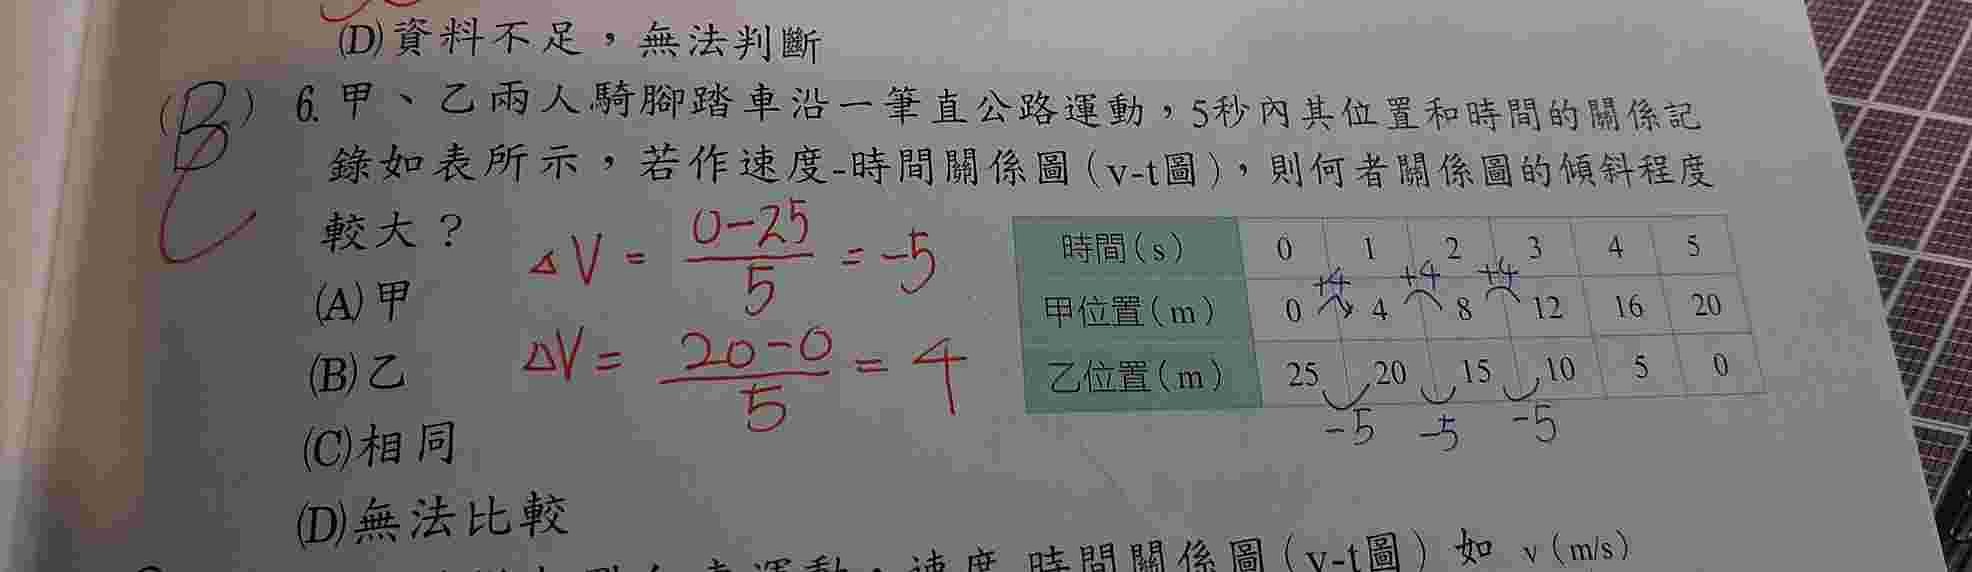 (D)資料不足，無法判斷
(B) 6. 甲、乙兩人騎腳踏車沿一筆直公路運動，5秒內其位置和時間的關係記
C
錄如表所示，若作速度-時間關係圖（v-t圖），則何者關係圖的傾斜程度
較大？
ΔV = 0-25 / 5 = -5
ΔV = 20-0 / 5 = 4
(A)甲
(B)乙
(C)相同
(D)無法比較
時間(s) 0 1 2 3 4 5
+4 +4 +4
甲位置(m) 0 4 8 12 16 20
乙位置(m) 25 20 15 10 5 0
-5 -5 -5
運動，速度-時間關係圖（v-t圖）如 v(m/s)